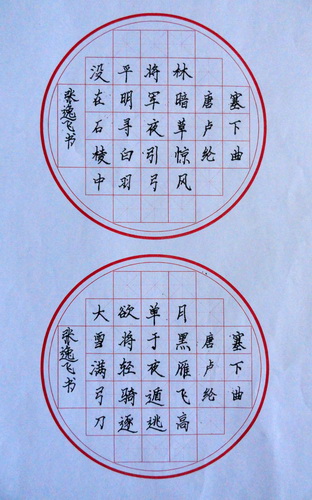 塞下曲
唐卢纶
林暗草惊风
将军夜引弓
平明寻白羽
没在石棱中
张逸飞书
塞下曲
唐卢纶
月黑雁飞高
单于夜遁逃
欲将轻骑逐
大雪满弓刀
张逸飞书